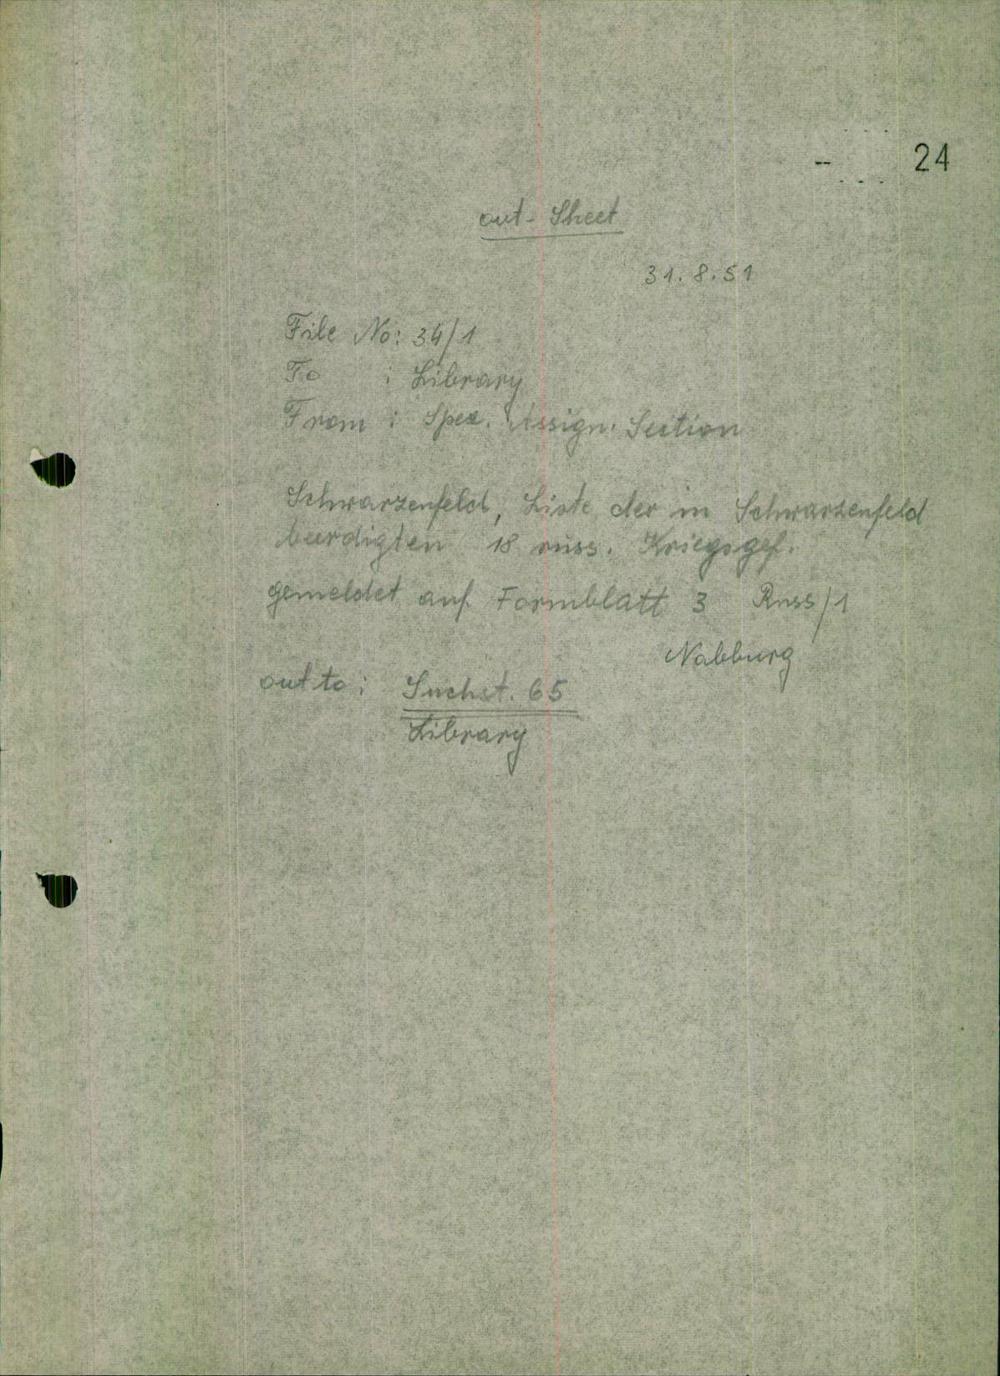 - 24
out-Sheet
31.8.51
File No: 34/1
To : Library
From : Spez. Assign. Section
Schwarzenfeld, Liste der in Schwarzenfeld
beerdigten 18 russ. Kriegsgef.
gemeldet auf Formblatt 3 Russ/1
Nabburg
out to: Suchst. 65
Library